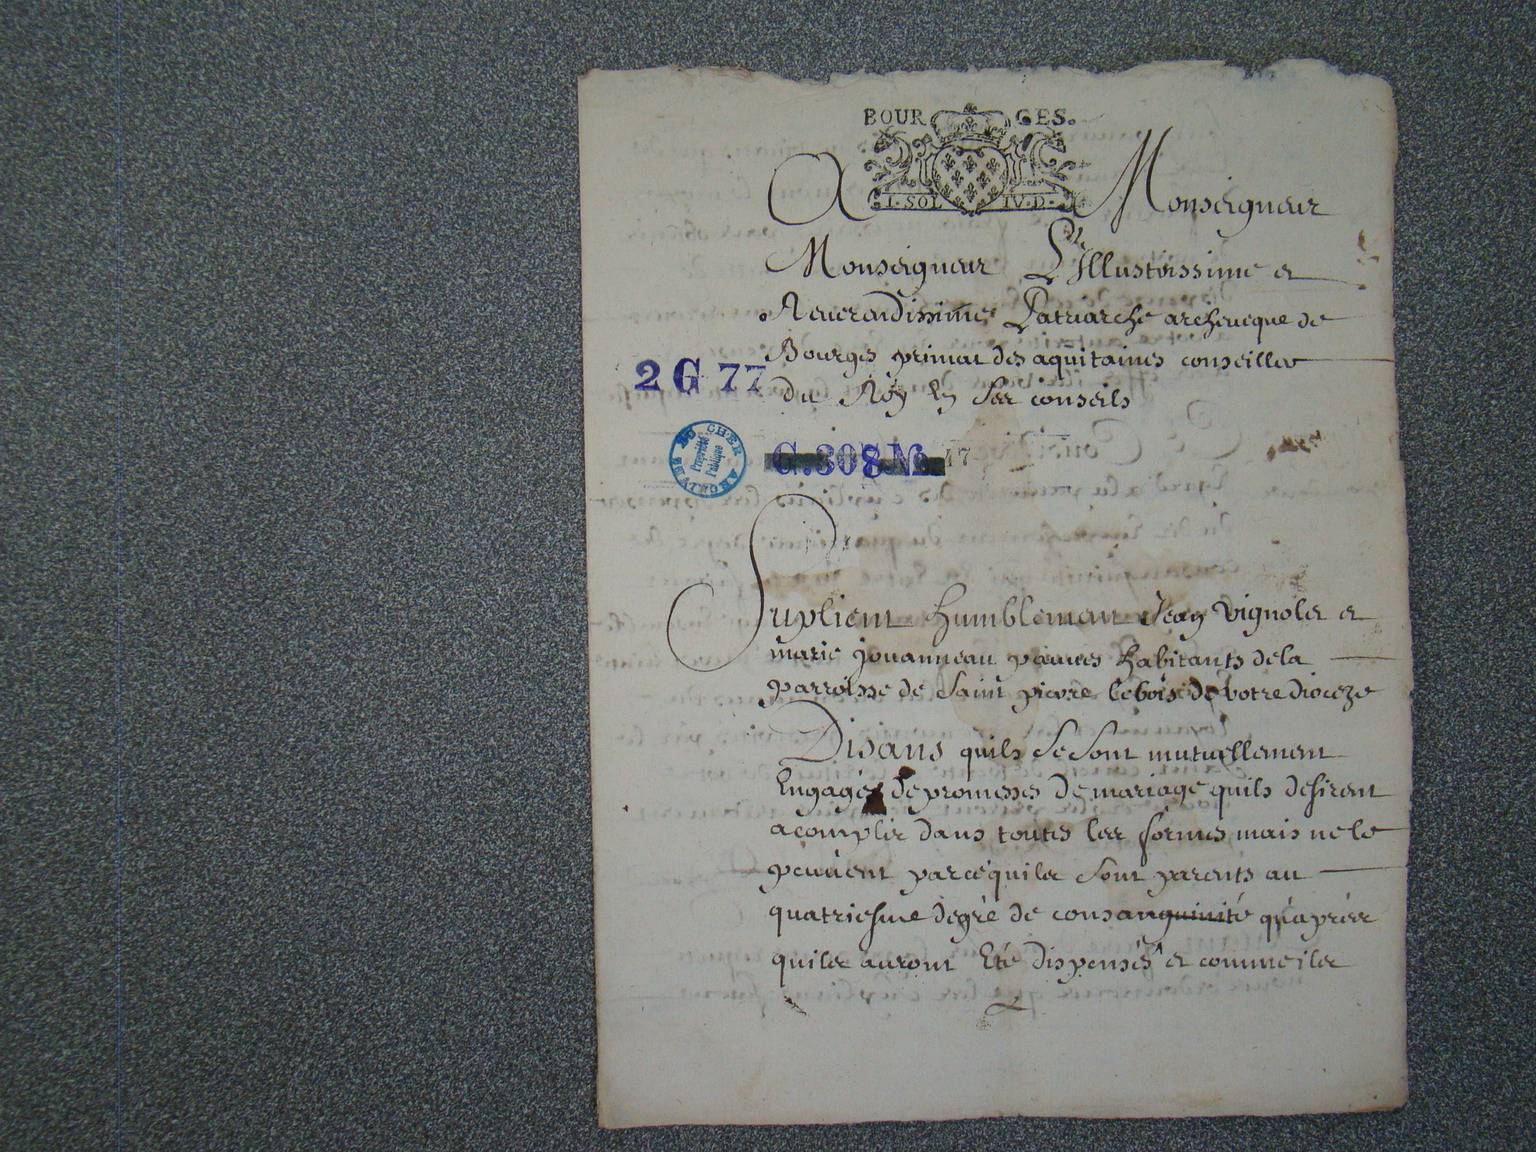 BOURGES.
I. SOL IV. D.
A Monseigneur
Monseigneur L'Illustrissime et
Reuerandissime Patriarche archeueque de
Bourges primat des aquitaines conseiller
2 G 77
du Roy En Ses conseils
DU CHER
Propriété
Publique
ARCHIVES
G. 308 M. 17
Suplient humblemant Jean Vignoles et
marie jouanneau pauures habitants de la
parroisse de Saint pierre lebois de votre dioceze
Disans quils Se Sont mutuellement
Engagés de promesses de mariage quils desirent
acomplir dans toutes les formes mais ne le
peuuent parcequiles Sont parents au
quatriesme degré de consanguinité qu'apres
quiles auront Eté dispensés et comme iles